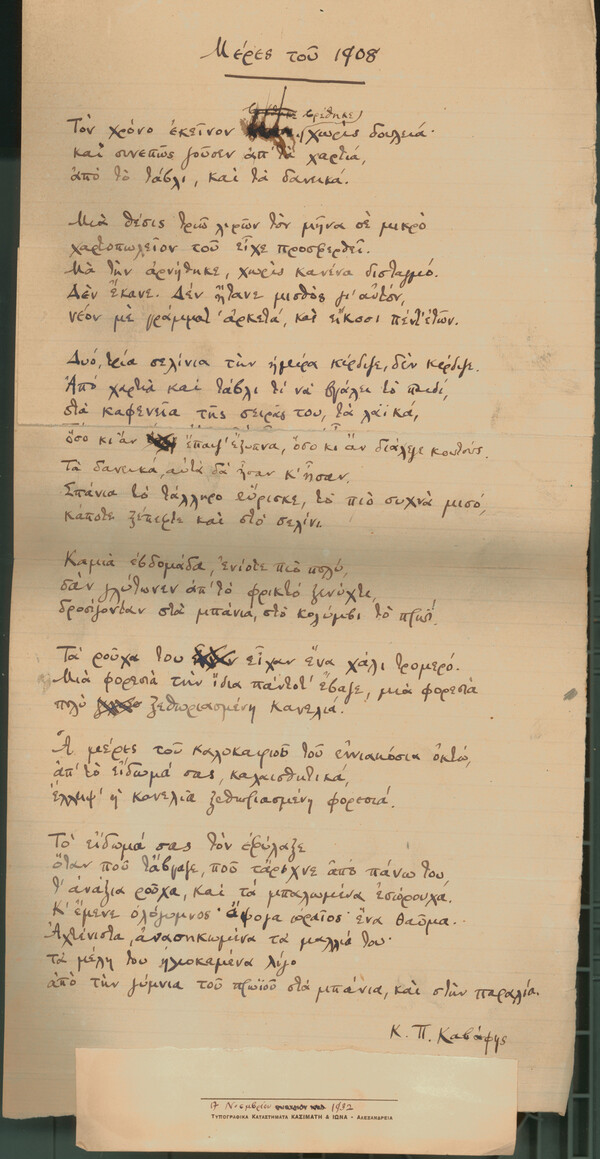 Μέρες τοῦ 1908
Τὸν χρόνο ἐκεῖνον βρέθηκε χωρὶς δουλειά·
καὶ συνεπῶς ζοῦσεν ἀπ' τὰ χαρτιά,
ἀπὸ τὸ τάβλι, καὶ τὰ δανεικά.
Μιὰ θέσις τριῶ λιρῶν τὸν μῆνα σὲ μικρὸ
χαρτοπωλεῖον τοῦ εἶχε προσφερθεῖ.
Μὰ τὴν ἀρνήθηκε, χωρὶς κανένα δισταγμό.
Δὲν ἔκανε. Δὲν ἤτανε μισθὸς γι' αὐτόν,
νέον μὲ γράμματ' ἀρκετά, καὶ εἴκοσι πέντ' ἐτῶν.
Δυό, τρία σελίνια τὴν ἡμέρα κέρδιζε, δὲν κέρδιζε.
Ἀπὸ χαρτιὰ καὶ τάβλι τί νὰ βγάλει τὸ παιδί,
στὰ καφενεῖα τῆς σειρᾶς του, τὰ λαϊκά,
ὅσο κι ἂν ἔπαιζ' ἔξυπνα, ὅσο κι ἂν διάλεγε κουτούς.
Τὰ δανεικά, αὐτὰ δὰ ἦσαν κ' ἦσαν.
Σπάνια τὸ τάλληρο εὕρισκε, τὸ πιὸ συχνὰ μισό,
κάποτε ξέπεφτε καὶ στὸ σελίνι.
Καμιὰ ἑβδομάδα, ἐνίοτε πιὸ πολύ,
σὰν γλύτωνεν ἀπ' τὸ φρικτὸ ξενύχτι,
δροσίζονταν στὰ μπάνια, στὸ κολύμβι τὸ πρωΐ.
Τὰ ροῦχα του εἶχαν ἕνα χάλι τρομερό.
Μιὰ φορεσιὰ τὴν ἴδια πάντοτ' ἔβαζε, μιὰ φορεσιὰ
πολὺ ξεθωριασμένη κανελιά.
Ἄ μέρες τοῦ καλοκαιριοῦ τοῦ ἐννιακόσια ὀκτώ,
ἀπ' τὸ εἴδωμά σας, καλαισθητικά,
ἔλλειψ' ἡ κανελιὰ ξεθωριασμένη φορεσιά.
Τὸ εἴδωμά σας τὸν ἐφύλαξε
ὅταν ποὺ τἄβγαζε, ποὺ τἄριχνε ἀπὸ πάνω του,
τ' ἀνάξια ροῦχα, καὶ τὰ μπαλωμένα ἐσώρουχα.
Κ' ἔμενε ὁλόγυμνος· ἄψογα ὡραῖος· ἕνα θαῦμα.
Ἀχτένιστα, ἀνασηκωμένα τὰ μαλλιά του·
τὰ μέλη του ἡλιοκαμένα λίγο
ἀπὸ τὴν γύμνια τοῦ πρωϊοῦ στὰ μπάνια, καὶ στὴν παραλία.
Κ. Π. Καβάφης
17 Νοεμβρίου 1932
ΤΥΠΟΓΡΑΦΙΚΑ ΚΑΤΑΣΤΗΜΑΤΑ ΚΑΣΙΜΑΤΗ & ΙΩΝΑ - ΑΛΕΞΑΝΔΡΕΙΑ